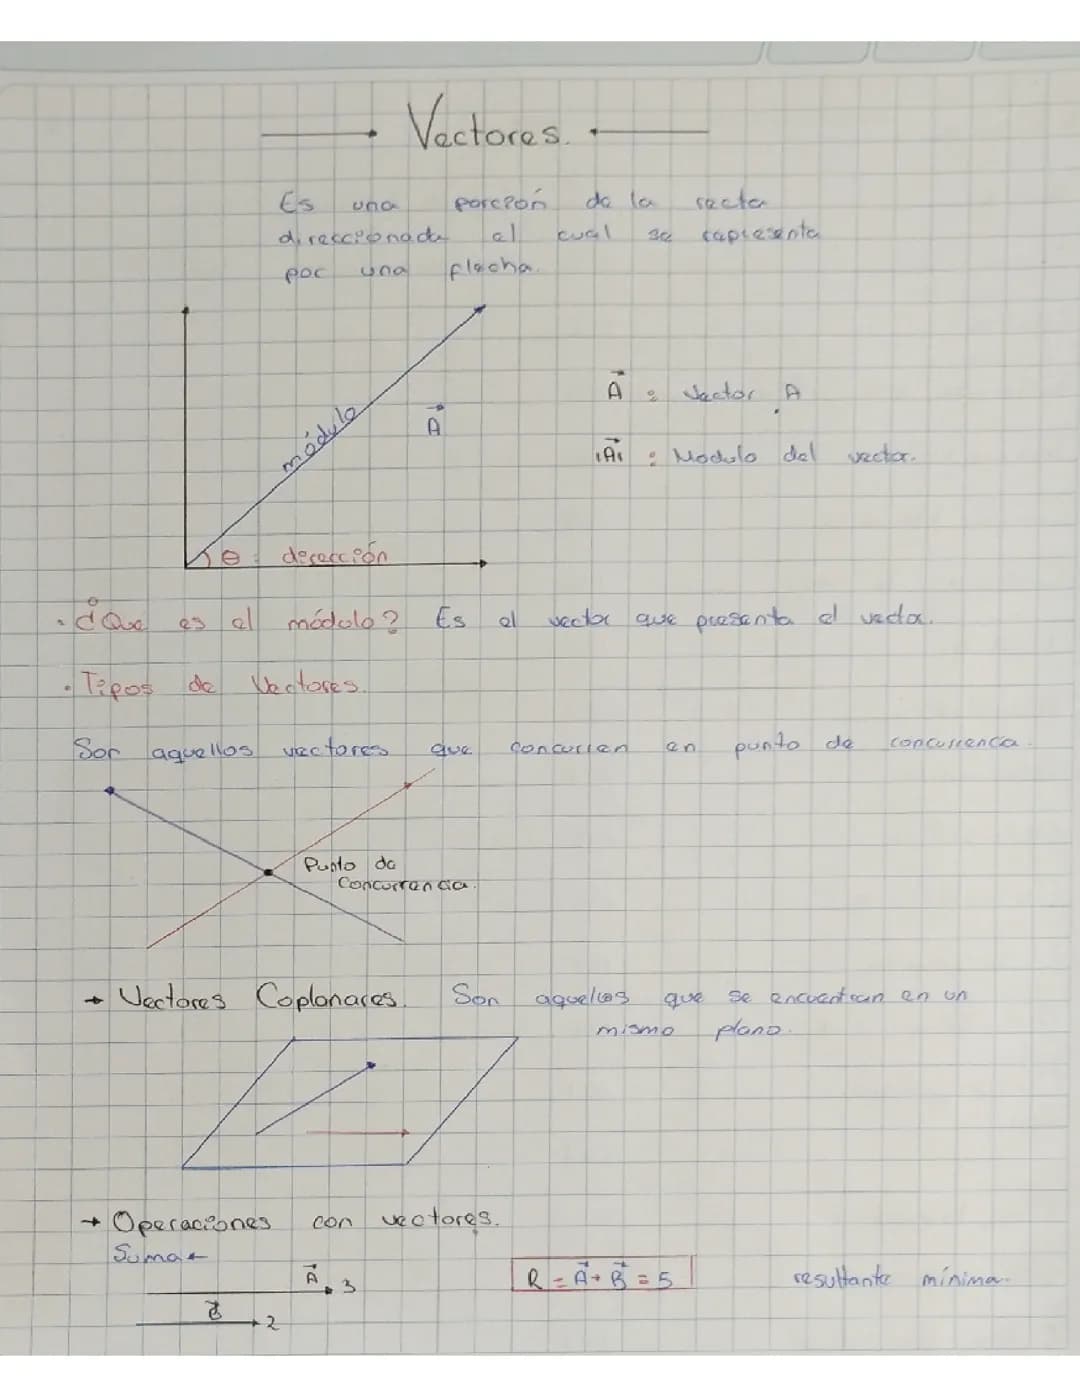 Vectores.
Es una porción de la recta
direccionada el cual se representa
por una flecha.
módulo
A
A : Vector A
|A| : Modulo del vector.
θ : dirección
· ¿Que es el módulo? Es el vector que presenta el vector.
· Tipos de Vectores.
Son aquellos vectores que concurren en punto de concurrencia.
Punto de
Concurrencia.
→ Vectores Coplanares. Son aquellos que se encuentran en un
mismo plano.
→ Operaciones con vectores.
Suma
A 3
R = A + B = 5 resultante mínima.
B 2